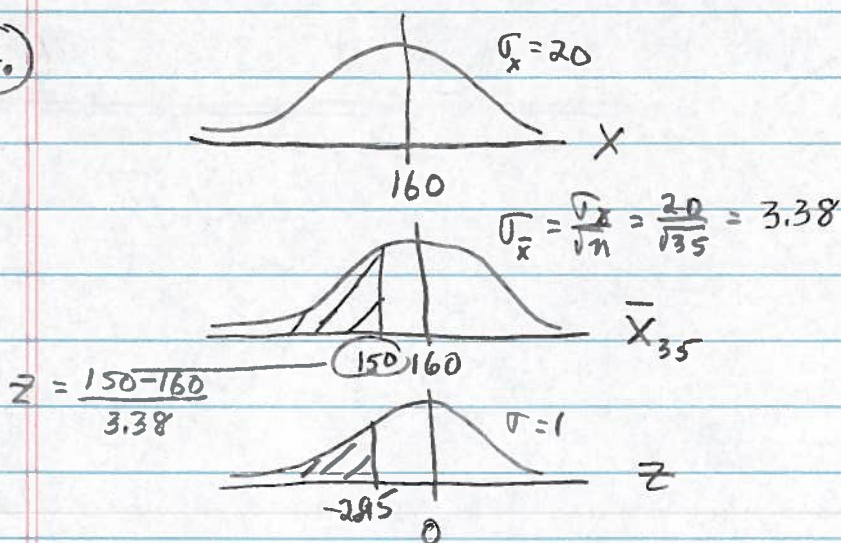 σₓ = 20
X
160
σ_x̄ = σₓ/√n = 20/√35 = 3.38
X̄₃₅
150 160
Z = (150-160)/3.38
σ = 1
Z
0